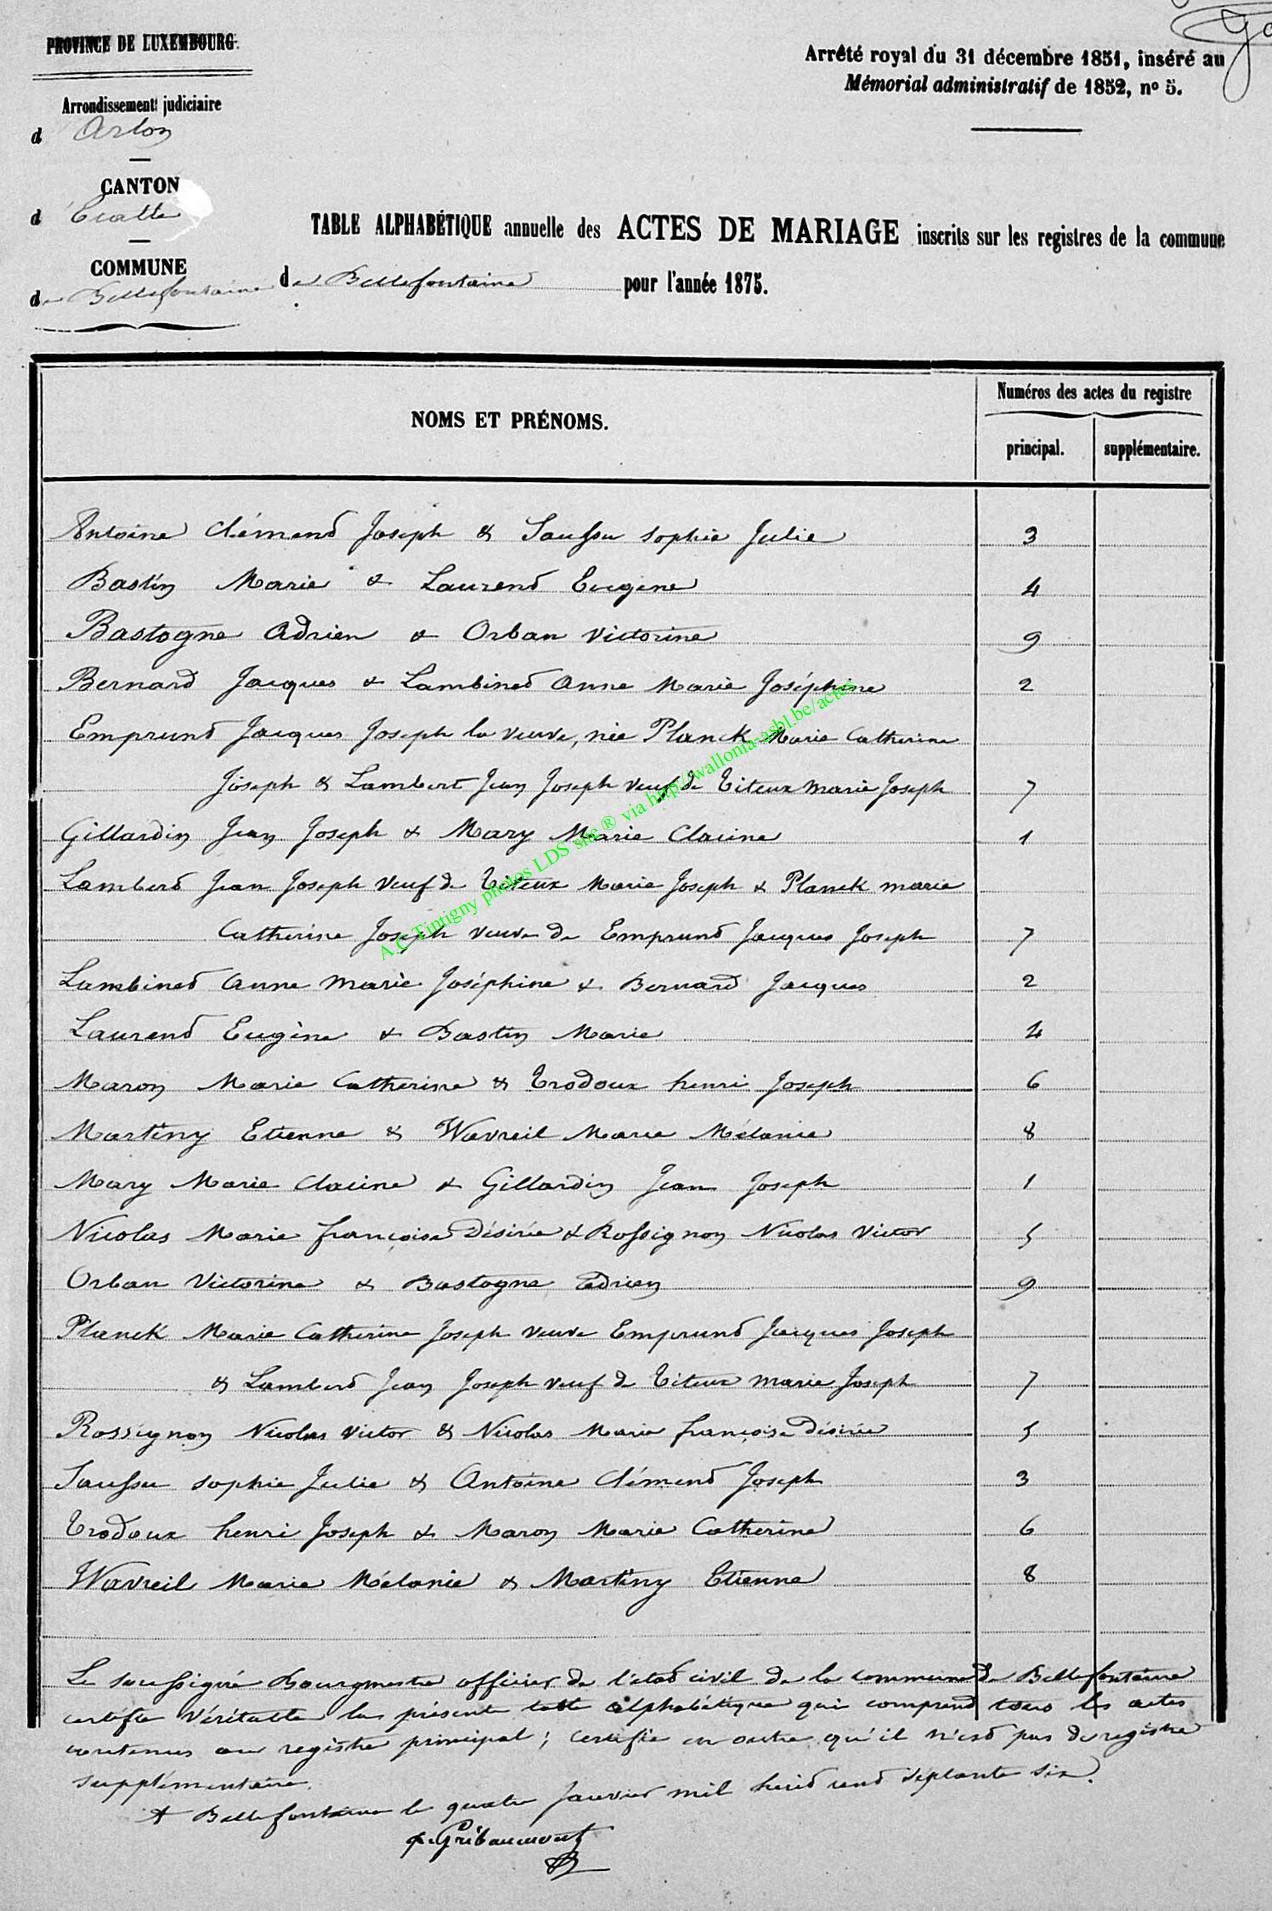 PROVINCE DE LUXEMBOURG.
Arrêté royal du 31 décembre 1851, inséré au
Mémorial administratif de 1852, nº 5.
Arrondissement judiciaire
d Arlon
CANTON
d Etalle
TABLE ALPHABÉTIQUE annuelle des ACTES DE MARIAGE inscrits sur les registres de la commune
COMMUNE
de Bellefontaine
de Bellefontaine pour l'année 1875.
NOMS ET PRÉNOMS.
Numéros des actes du registre
principal. supplémentaire.
Antoine Clémend Joseph & Saussu Sophie Julie 3
Bastin Marie & Laurend Eugene 4
Bastogne Adrien & Orban Victorine 9
Bernard Jacques & Lambined Anne Marie Joséphine 2
Emprund Jacques Joseph la veuve, née Planck Marie Catherine
Joseph & Lambert Jean Joseph veuf de Titeux Marie Joseph 7
Gillardin Jean Joseph & Mary Marie Clacine 1
Lamberd Jean Joseph veuf de Titeux Marie Joseph & Planck Marie
Catherine Joseph veuve de Emprund Jacques Joseph 7
Lambined Anne Marie Joséphine & Bernard Jacques 2
Laurend Eugène & Bastin Marie 4
Maron Marie Catherine & Trodoux henri Joseph 6
Martiny Etienne & Wavreil Marie Mélanie 8
Mary Marie Clacine & Gillardin Jean Joseph 1
Nicolas Marie françoise Désirée & Rossignon Nicolas Victor 5
Orban Victorine & Bastogne Adrien 9
Planck Marie Catherine Joseph veuve Emprund Jacques Joseph
& Lamberd Jean Joseph veuf de Titeux Marie Joseph 7
Rossignon Nicolas Victor & Nicolas Marie françoise Désirée 5
Saussu Sophie Julie & Antoine Clémend Joseph 3
Trodoux henri Joseph & Maron Marie Catherine 6
Wavreil Marie Mélanie & Martiny Etienne 8
Le soussigné Bourgmestre officier de l'étad civil de la commune de Bellefontaine
certifie véritable la présente table alphabétique qui comprend tous les actes
contenus au registre principal; certifie en outre qu'il n'esd pas de registre
supplémentaire.
A Bellefontaine le quatre Janvier mil huid cend septante six.
Gribaumont
A.C Tintigny photos LDS site ® via http://wallonia-asbl.be/actes